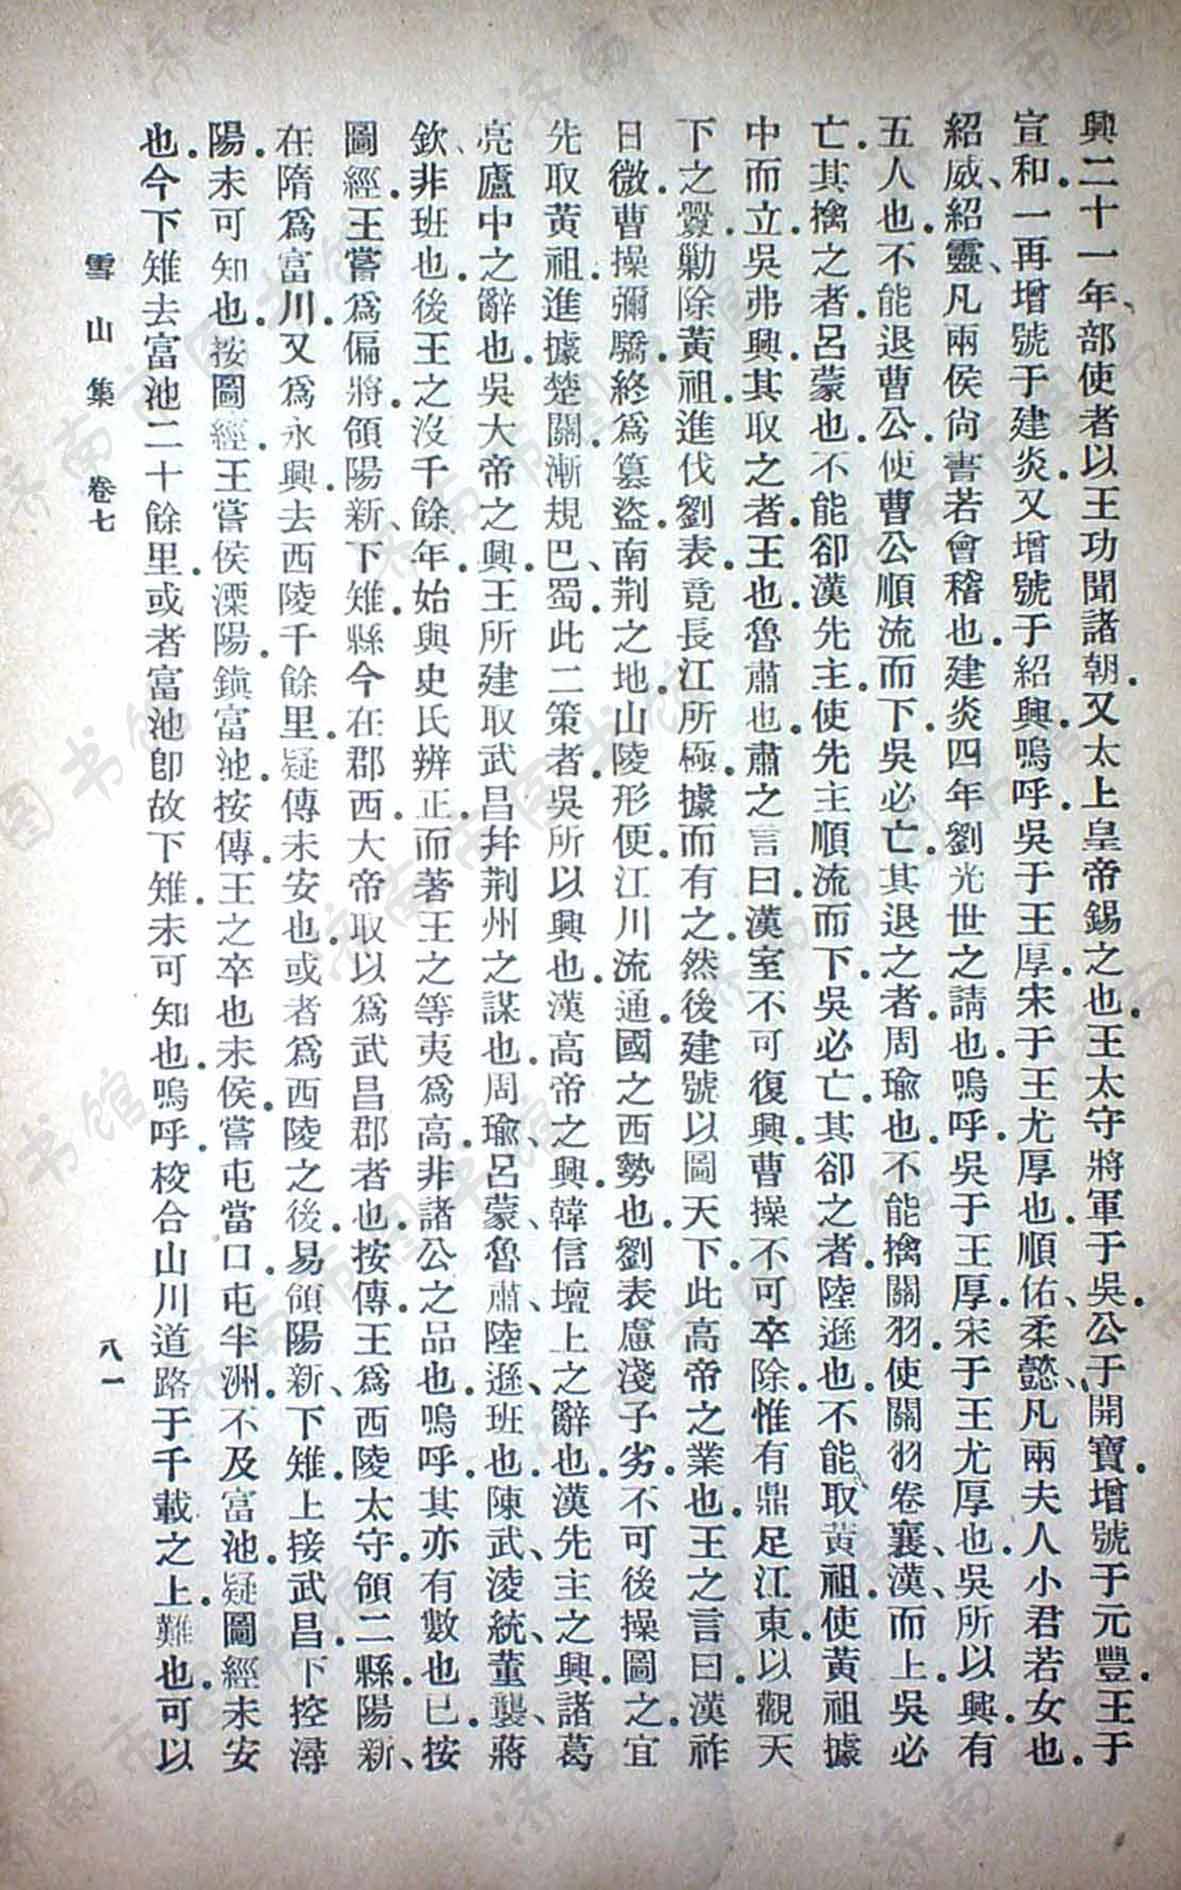 興二十一年、部使者以王功聞諸朝。又太上皇帝錫之也。王太守將軍于吳。公于開寶。增號于元豐。王于
宣和。一再增號于建炎。又增號于紹興。嗚呼。吳于王厚。宋于王尤厚也。順佑、柔懿、凡兩夫人小君若女也。
紹威、紹靈、凡兩侯尙書若會稽也。建炎四年。劉光世之請也。嗚呼。吳于王厚。宋于王尤厚也。吳所以興。有
五人也。不能退曹公。使曹公順流而下。吳必亡。其退之者。周瑜也。不能擒關羽。使關羽卷襄、漢、而上。吳必
亡。其擒之者。呂蒙也。不能卻漢先主。使先主順流而下。吳必亡。其卻之者。陸遜也。不能取黃祖。使黃祖據
中而立。吳弗興。其取之者。王也。魯肅也。肅之言曰。漢室不可復興。曹操不可卒除。惟有鼎足江東。以觀天
下之釁。勦除黃祖。進伐劉表。竟長江所極。據而有之。然後建號以圖天下。此高帝之業也。王之言曰。漢祚
日微。曹操彌驕。終爲簒盜。南荆之地。山陵形便。江川流通。國之西勢也。劉表慮淺子劣。不可後操圖之。宜
先取黃祖。進據楚關。漸規巴、蜀。此二策者。吳所以興也。漢高帝之興。韓信壇上之辭也。漢先主之興。諸葛
亮廬中之辭也。吳大帝之興。王所建取武昌幷荆州之謀也。周瑜、呂蒙、魯肅、陸遜、班也。陳武、淩統、董襲、蔣
欽、非班也。後王之沒千餘年。始與史氏辨正。而著王之等夷爲高。非諸公之品也。嗚呼。其亦有數也已。按
圖經。王嘗爲偏將。領陽新、下雉。縣今在郡西。大帝取以爲武昌郡者也。按傳。王爲西陵太守。領二縣。陽新、
在隋爲富川。又爲永興。去西陵千餘里。疑傳未安也。或者爲西陵之後。易領陽新、下雉。上接武昌。下控潯
陽。未可知也。按圖經。王嘗侯溧陽。鎭富池。按傳。王之卒也未侯。嘗屯當口。屯半洲。不及富池。疑圖經未安
也。今下雉去富池二十餘里。或者富池卽故下雉。未可知也。嗚呼。校合山川道路于千載之上。難也。可以
雪山集 卷七 八一